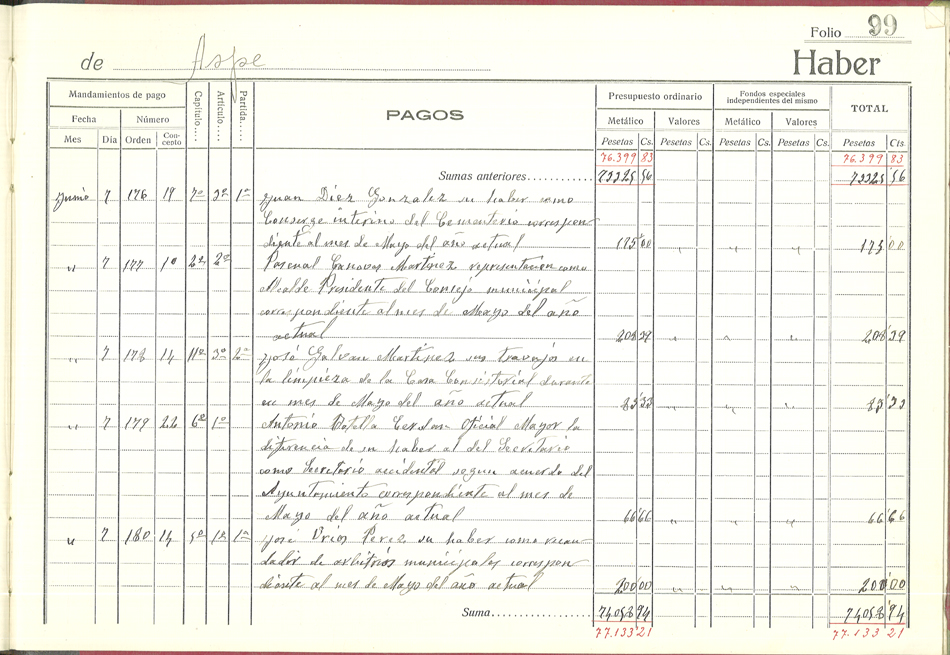 Folio 99
de Aspe
Haber
Mandamientos de pago
Capítulo....
Artículo....
Partida.....
PAGOS
Presupuesto ordinario
Fondos especiales independientes del mismo
TOTAL
Fecha Número
Metálico Valores Metálico Valores
Mes Día Orden Concepto
Pesetas Cs. Pesetas Cs. Pesetas Cs. Pesetas Cs. Pesetas Cts.
76.399 83 76.399 83
Sumas anteriores............ 73325 56 73325 56
Junio 7 176 19 7º 3º 1ª Juan Díez Gonzalez su haber como
Conserge interino del Cementerio correspon-
diente al mes de Mayo del año actual 175'00 " " " 175'00
" 7 177 1º 2º 2º Pascual Canovas Martinez representación como
Alcalde Presidente del Consejo municipal
correspondiente al mes de Mayo del año
actual 208'39 " " " 208'39
" 7 178 14 11º 3º 2ª José Galvan Martinez sus travajos en
la limpieza de la Casa Consistorial durante
el mes de Mayo del año actual 83'33 " " " 83'33
" 7 179 22 6º 1º Antonio Botella Cerdan Oficial Mayor la
diferencia de su haber al del Secretario
como Secretario accidental segun acuerdo del
Ayuntamiento correspondiente al mes de
Mayo del año actual 66'66 " " " 66'66
" 7 180 14 5º 1º 1ª José Prios Perez su haber como recau-
dador de arbitrios municipales correspon-
diente al mes de Mayo del año actual 200'00 " " " 200'00
Suma.................. 74058'94 74058'94
77.133 21 77.133 21